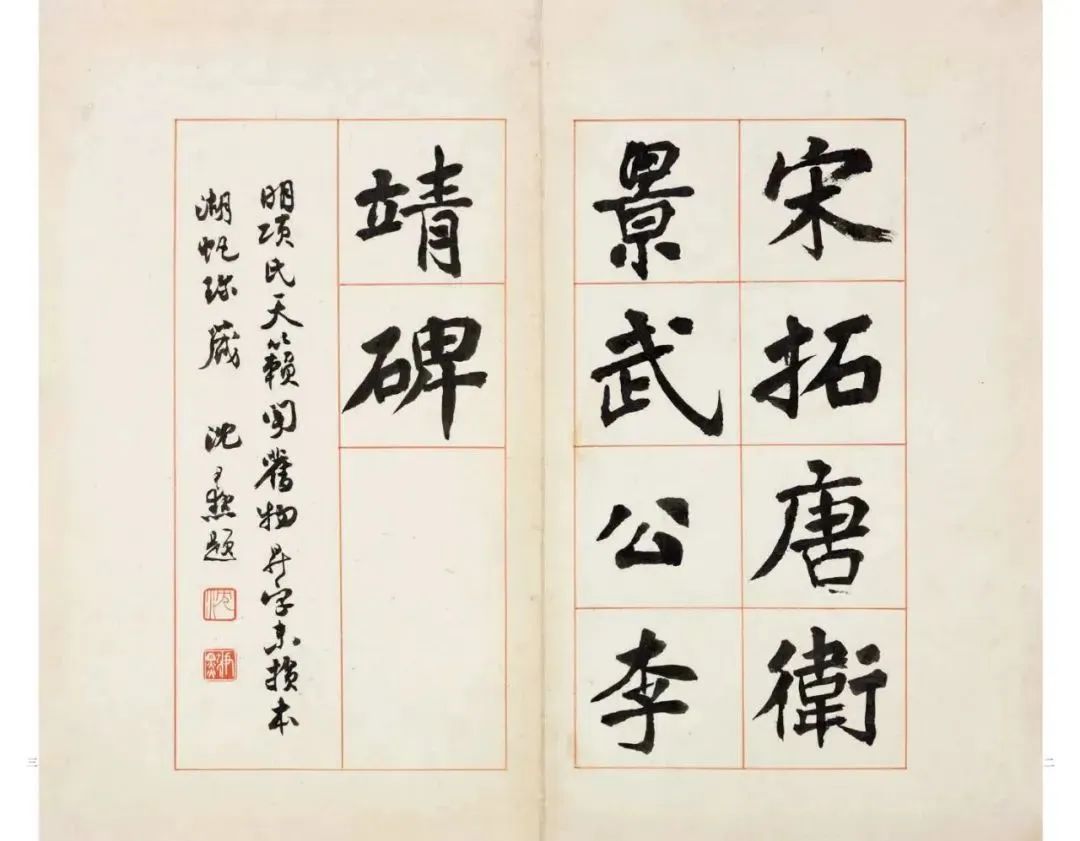 宋拓唐衛
景武公李
靖碑
明項氏天籟閣舊物昇字未損本
湖帆珍藏　沈尹默題
沈
尹默
二
三